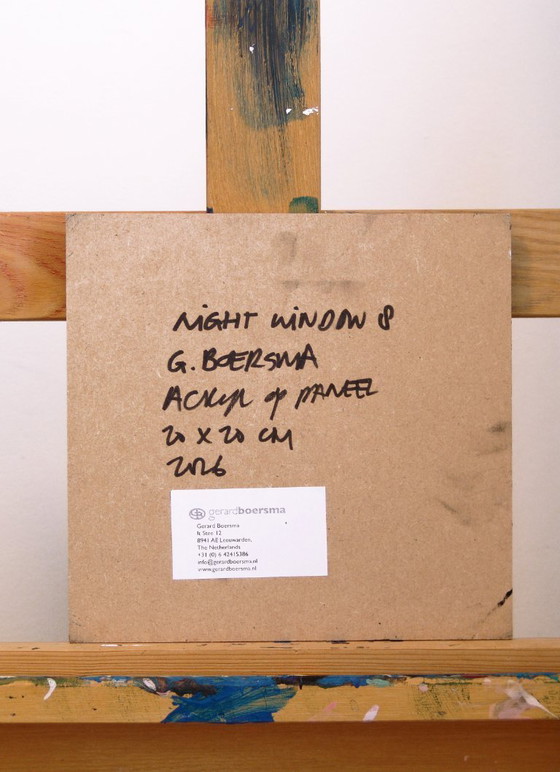 NIGHT WINDOW 8
G. BOERSMA
ACRYL op PANEEL
20 X 20 CM
2026
gerardboersma
Gerard Boersma
8941 AE Leeuwarden,
The Netherlands
+31 (0) 6 42415386
info@gerardboersma.nl
www.gerardboersma.nl